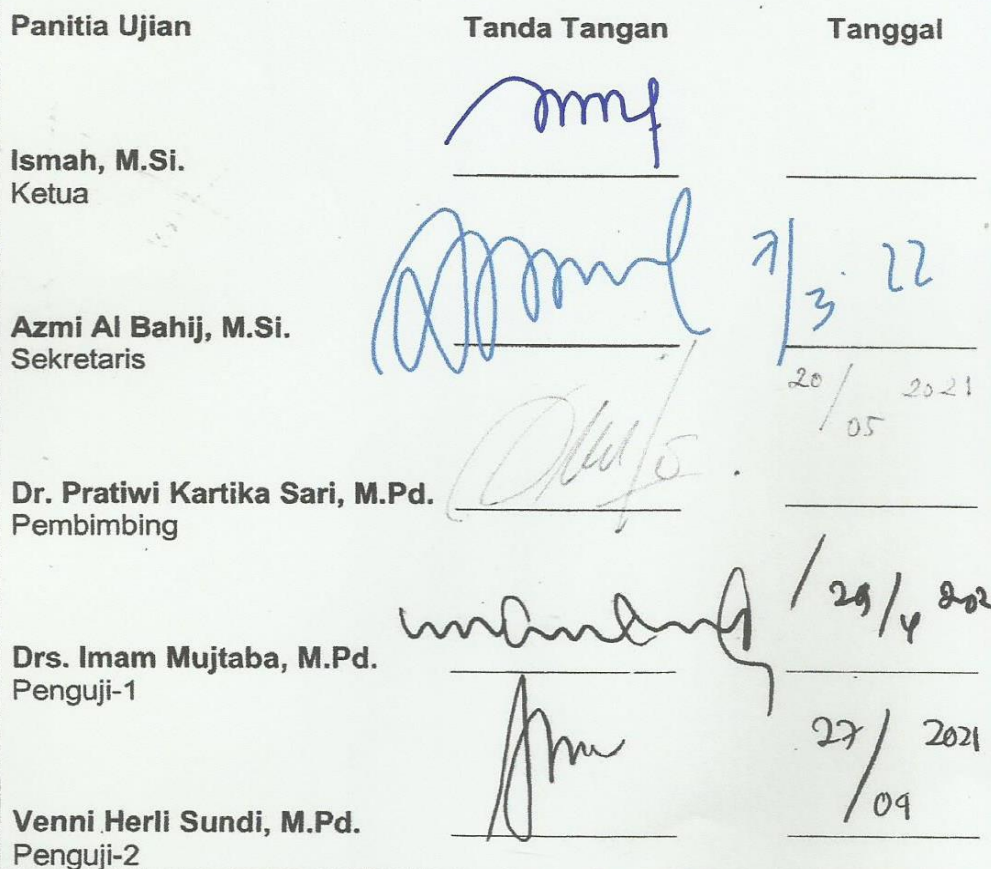 Panitia Ujian Tanda Tangan Tanggal
Ismah, M.Si.
Ketua
7/3 22
Azmi Al Bahij, M.Si.
Sekretaris
20/05 2021
Dr. Pratiwi Kartika Sari, M.Pd.
Pembimbing
29/4 202
Drs. Imam Mujtaba, M.Pd.
Penguji-1
27/09 2021
Venni Herli Sundi, M.Pd.
Penguji-2